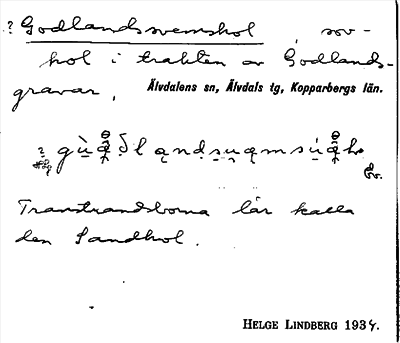 ? Godlandssvemshol, sov-
hol i trakten av Godlands-
gravar, Älvdalens sn, Älvdals tg, Kopparbergs län.
Transtrandsborna lär kalla
den Sandhol.
HELGE LINDBERG 1934.